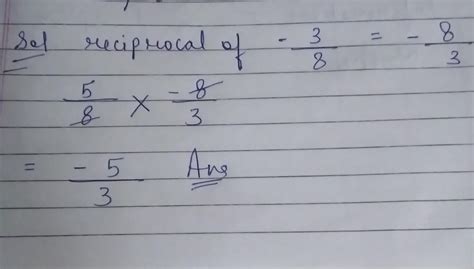 Sol reciprocal of - 3/8 = - 8/3
5/8 × -8/3
= -5/3 Ans